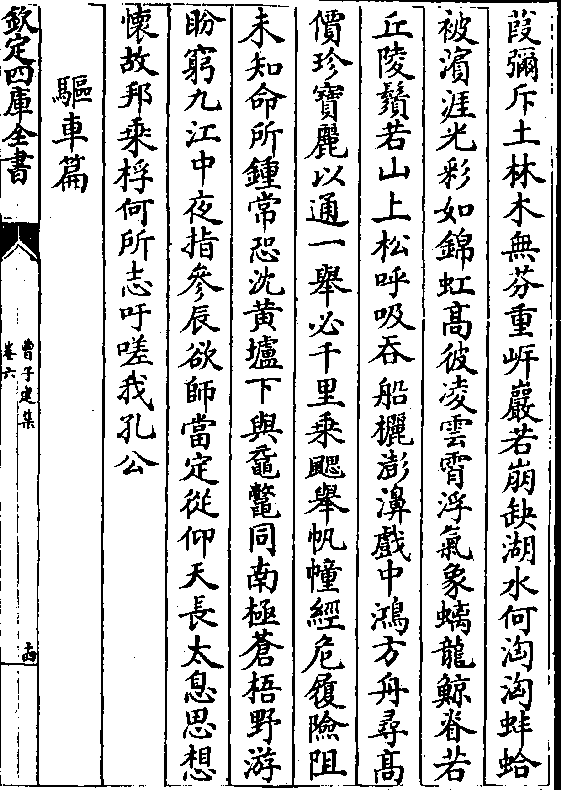 葭彌斥土林木無芬重㟁巖若崩缺湖水何洶洶蚌蛤
被濵涯光彩如錦虹髙彼凌雲霄浮氣象螭龍鯨脊若
丘陵鬚若山上松呼吸吞船欐澎濞戲中鴻方舟尋髙
價珍寶麗以通一舉必千里乗颸舉帆幢經危履險阻
未知命所鍾常恐沈黄壚下與黿鼈同南極蒼梧野游
盼窮九江中夜指參辰欲師當定從仰天長太息思想
懷故邦乗桴何所志吁嗟我孔公
驅車篇
欽定四庫全書
曹子建集
卷六